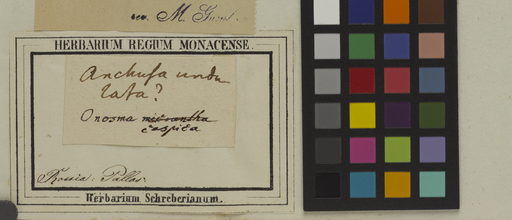 M.
HERBARIUM REGIUM MONACENSE.
Anchusa undu
lata?
Onosma micrantha
caspica
Rossia. Pallas.
Herbarium Schreberianum.